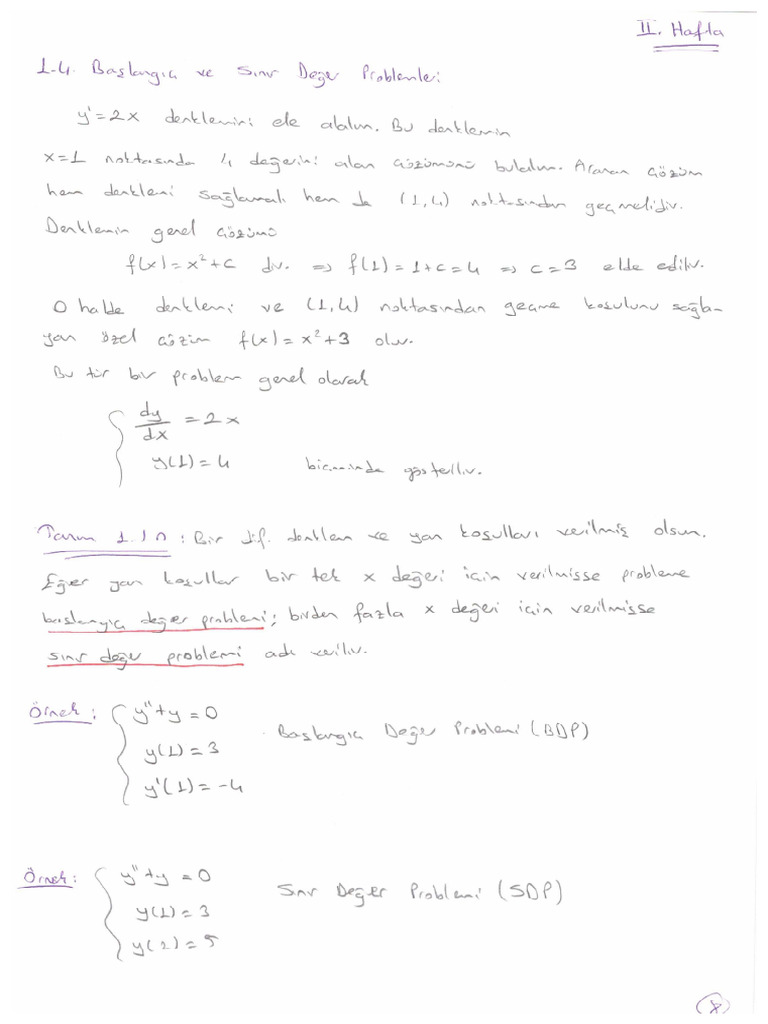 II. Hafta
1.4. Başlangıç ve Sınır Değer Problemleri
y' = 2x denklemini ele alalım. Bu denklemin
x=1 noktasında 4 değerini alan çözümünü bulalım. Aranan çözüm
hem denklemi sağlamalı hem de (1,4) noktasından geçmelidir.
Denklemin genel çözümü
f(x) = x² + c dir. ⇒ f(1) = 1+c = 4 ⇒ c = 3 elde edilir.
O halde denklemi ve (1,4) noktasından geçme koşulunu sağla-
yan özel çözüm f(x) = x² + 3 olur.
Bu tür bir problem genel olarak
dy/dx = 2x
y(1) = 4 biçiminde gösterilir.
Tanım 1.10 : Bir dif. denklem ve yan koşulları verilmiş olsun.
Eğer yan koşullar bir tek x değeri için verilmişse probleme
başlangıç değer problemi; birden fazla x değeri için verilmişse
sınır değer problemi adı verilir.
Örnek : y'' + y = 0
y(1) = 3 Başlangıç Değer Problemi (BDP)
y'(1) = -4
Örnek : y'' + y = 0
y(1) = 3 Sınır Değer Problemi (SDP)
y(2) = 5
8